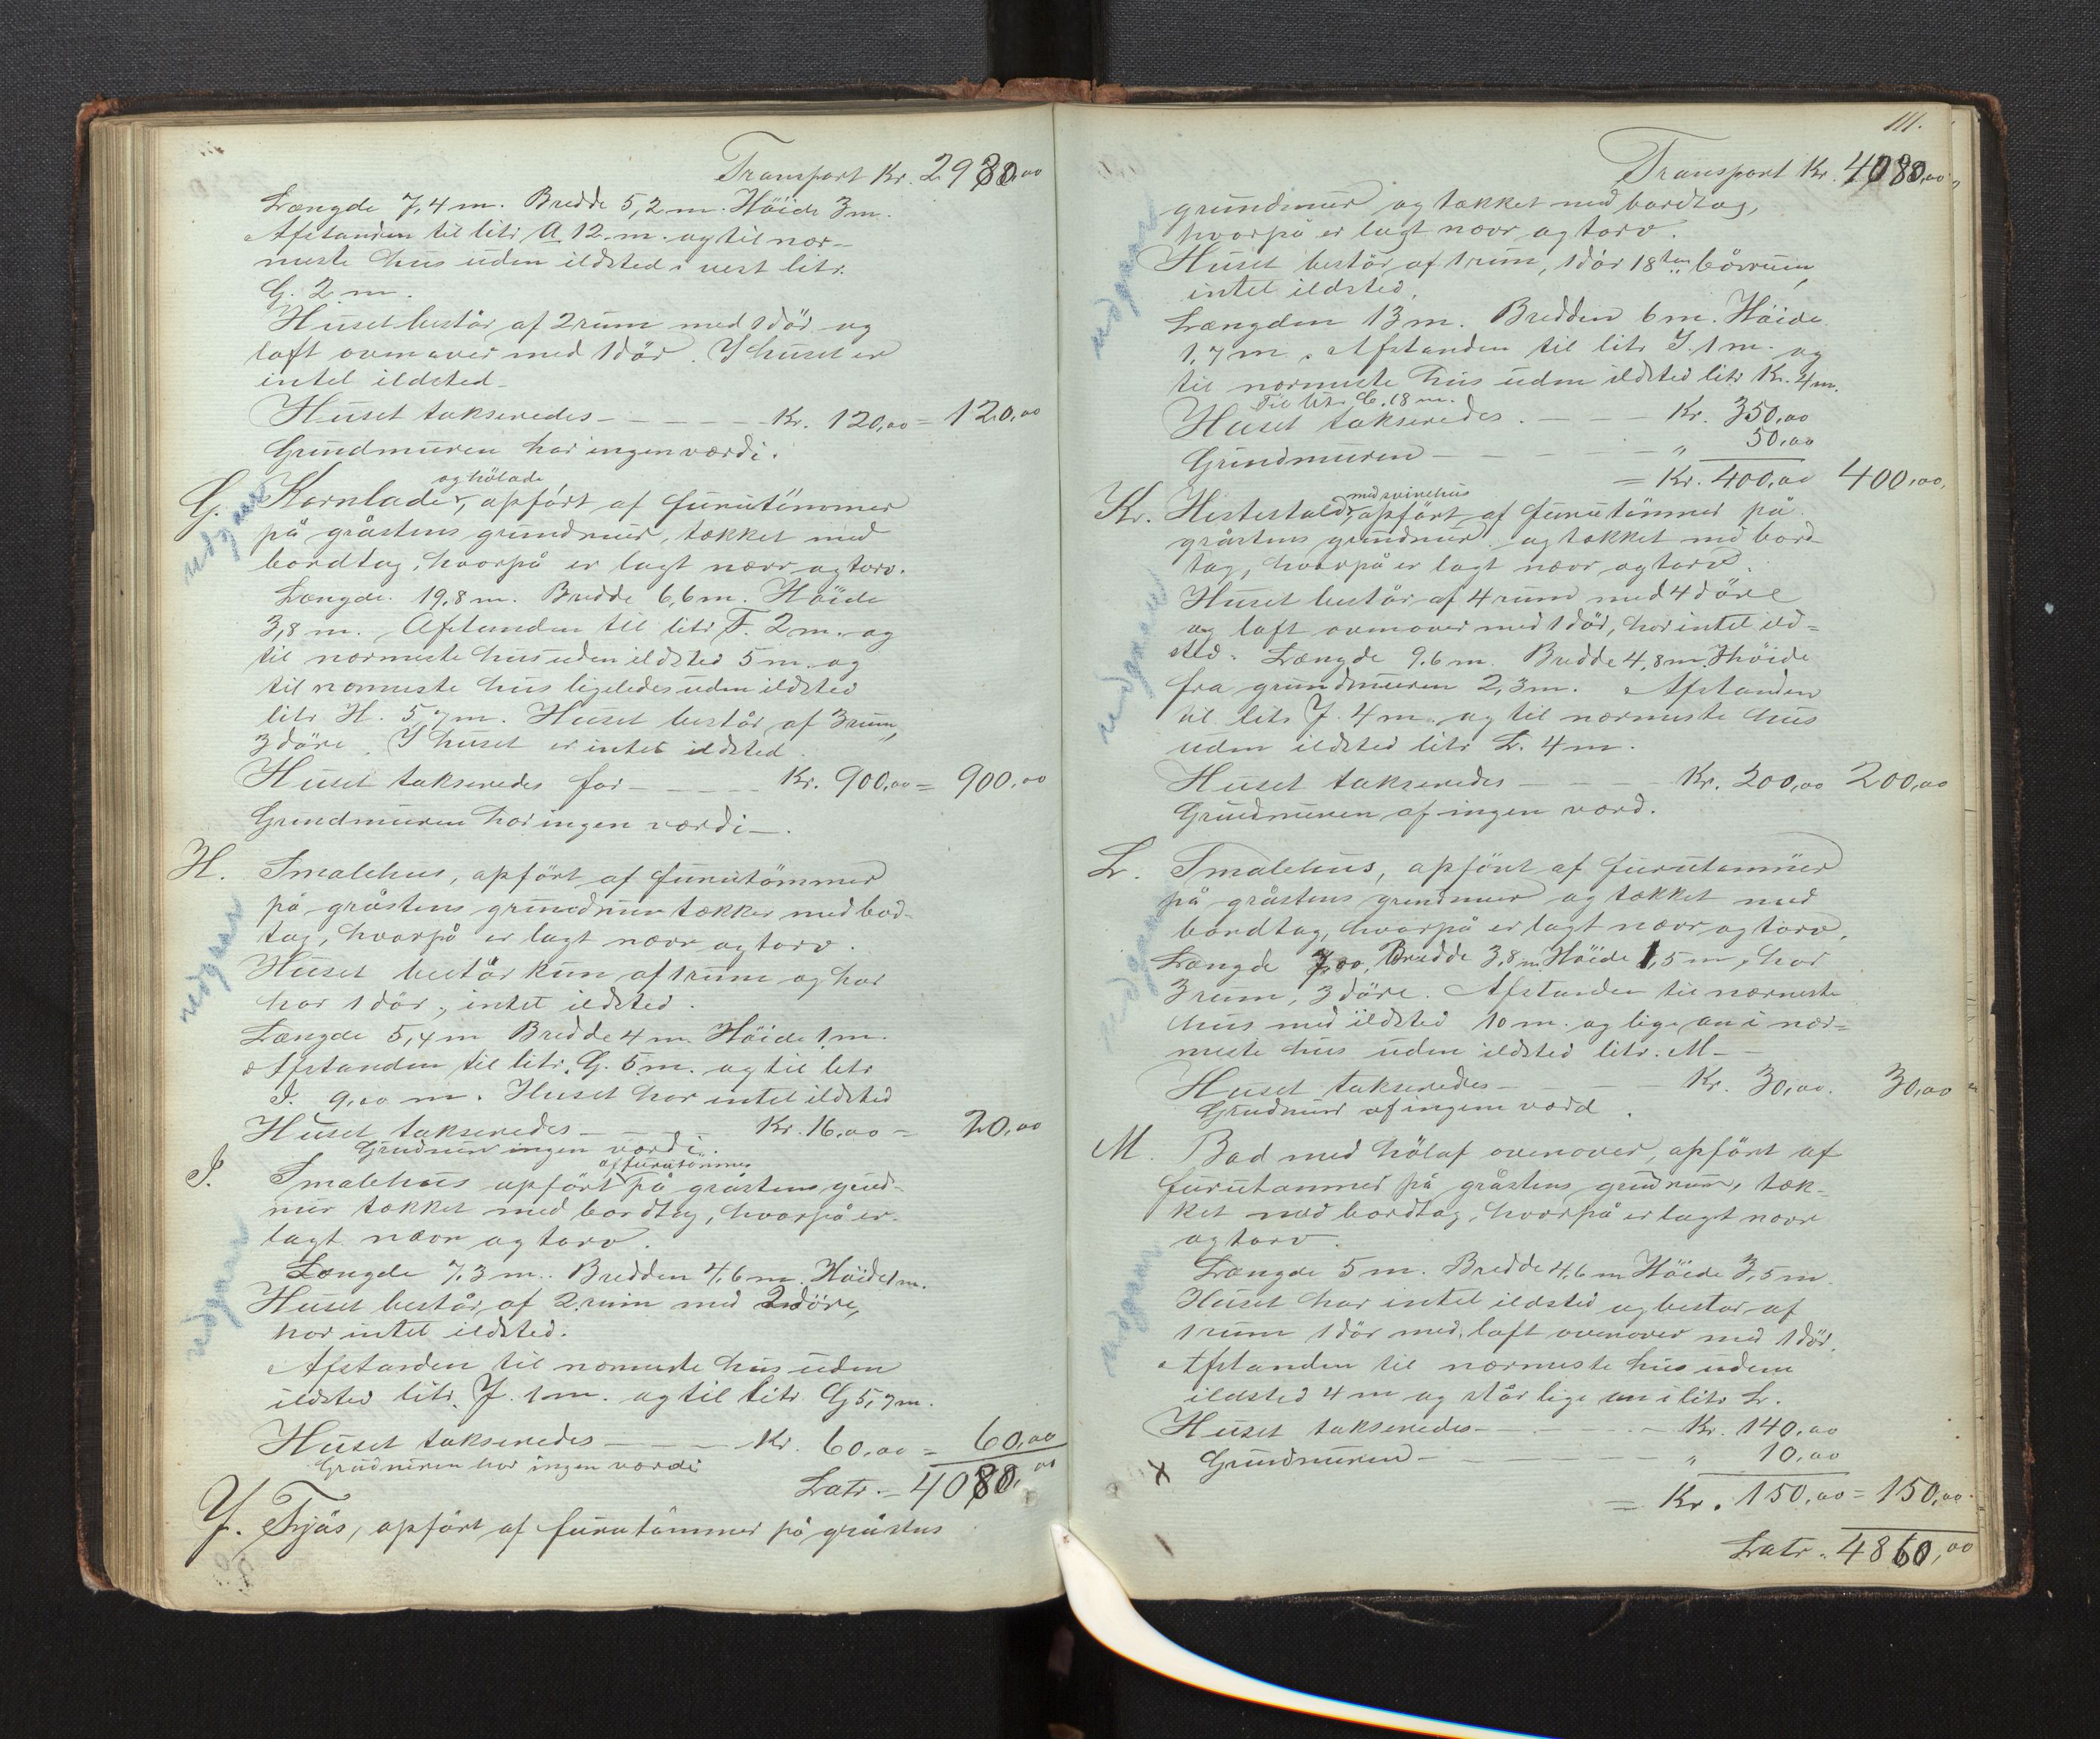 Transport Kr. 2980,00
Længde 7,4 m. Bredde 5,2 m. Höide 3 m.
Afstanden til litr A 12. m. og til nær-
meste hus uden ildsted i vest litr.
G. 2 m.
Huset består af 2 rum med 1 dör og
loft ovenover med 1 dör. I huset er
intet ildsted.
Huset takseredes - - - - - Kr. 120,00 = 120,00
Grundmuren har ingen værdi.
og hölade
G. Kornlade, opfört af furutömmer
på gråstens grundmur, tækket med
bordtag, hvorpå er lagt næver og torv.
Længde. 19,8 m. Bredde 6,6 m. Höide
3,8 m. Afstanden til litr F. 2 m. og
til nærmeste hus uden ildsted 5 m. og
til nærmeste hus ligeledes uden ildsted
litr H. 5,7 m. Huset består af 3 rum,
3 döre. I huset er intet ildsted.
Huset takseredes for - - - Kr. 900,00 = 900,00
Grundmuren har ingen værdi -.
H. Smalehus, opfört af furutömmer
på gråstens grundmur tækket med bod-
tag, hvorpå er lagt næver og torv.
Huset består kun af 1 rum og har
har 1 dör, intet ildsted.
Længde 5,4 m Bredde 4 m. Höide 1 m.
Afstanden til litr. G. 5 m. og til litr
I. 9,00 m. Huset har intet ildsted
Huset takseredes - - Kr. 16,00 = 20,00
Grudmur ingen værdi.
af furutömmer
I. Smalehus opfört på gråstens grud-
mur tækket med bordtag, hvorpå er
lagt næver og torv.
Længde 7,3 m. Bredden 4,6 m. Höide 1 m.
Huset består af 2 rum med 2 döre,
har intet ildsted.
Afstanden til nærmeste hus uden
ildsted litr. J. 1 m. og til litr G 5,7 m.
Huset takseredes - - - Kr. 60,00 = 60,00
Grudmuren har ingen værdi
Latr. = 4080,00
J. Fjös, opfört af furutömmer på gråstens
udgaar
udgaar
udgaar
111.
Transport Kr. 4080,00
grundmur og tækket med bordtag,
hvorpå er lagt næver og torv.
Huset består af 1 rum, 1 dör 18ten båsrum,
intet ildsted.
Længden 13 m. Bredden 6 m. Höide
1,7 m. Afstanden til litr I. 1 m. og
til nærmeste hus uden ildsted litr K. 4 m.
Til litr C. 18 m.
Huset takseredes. - - - Kr. 350,00
Grundmuren - - - - - " 50,00
= Kr. 400,00 400,00,
med svinehus
Kr. Hestestald, opfört af furutömmer på
gråstens grundmur og tækket med bord-
tag, hvorpå er lagt næver og torv.
Huset består af 4 rum med 4 döre
og loft ovenover med 1 dör, har intet ild-
sted. Længde 9,6 m. Bredde 4,8 m. Höide
fra grundmuren 2,3 m. Afstanden
til litr J. 4 m. og til nærmeste hus
uden ildsted litr L. 4 m.
Huset takseredes - - - Kr. 200,00 200,00
Grundmuren af ingen værd.
L. Smalehus, opfört af furutömmer
på gråstens grundmur og tækket med
bordtag, hvorpå er lagt næver og torv.
Længde 7,00, Bredde 3,8 m Höide 1,5 m, har
3 rum, 3 döre. Afstanden til nærmeste
hus med ildsted 10 m. og lige an i nær-
meste hus uden ildsted litr. M -
Huset takseredes - - - Kr. 30,00. 30,00
Grudmur af ingen værd.
M. Bad med höloft ovenover, opfört af
furutømmer på gråstens grudmur, tæk-
ket med bordtag, hvorpå er lagt næver
og torv.
Længde 5 m. Bredde 4,6 m Höide 3,5 m.
Huset har intet ildsted og bestor af
1 rum 1 dör med loft ovenover med 1 dör.
Afstanden til nærmeste hus uden
ildsted 4 m og står lige an i litr L.
Huset takseredes - - - Kr. 140,00
x Grundmuren - - - - " 10,00
= Kr. 150,00 = 150,00.
Latr. 4860,00
udgaar
udgaar
udgaar
udgaar